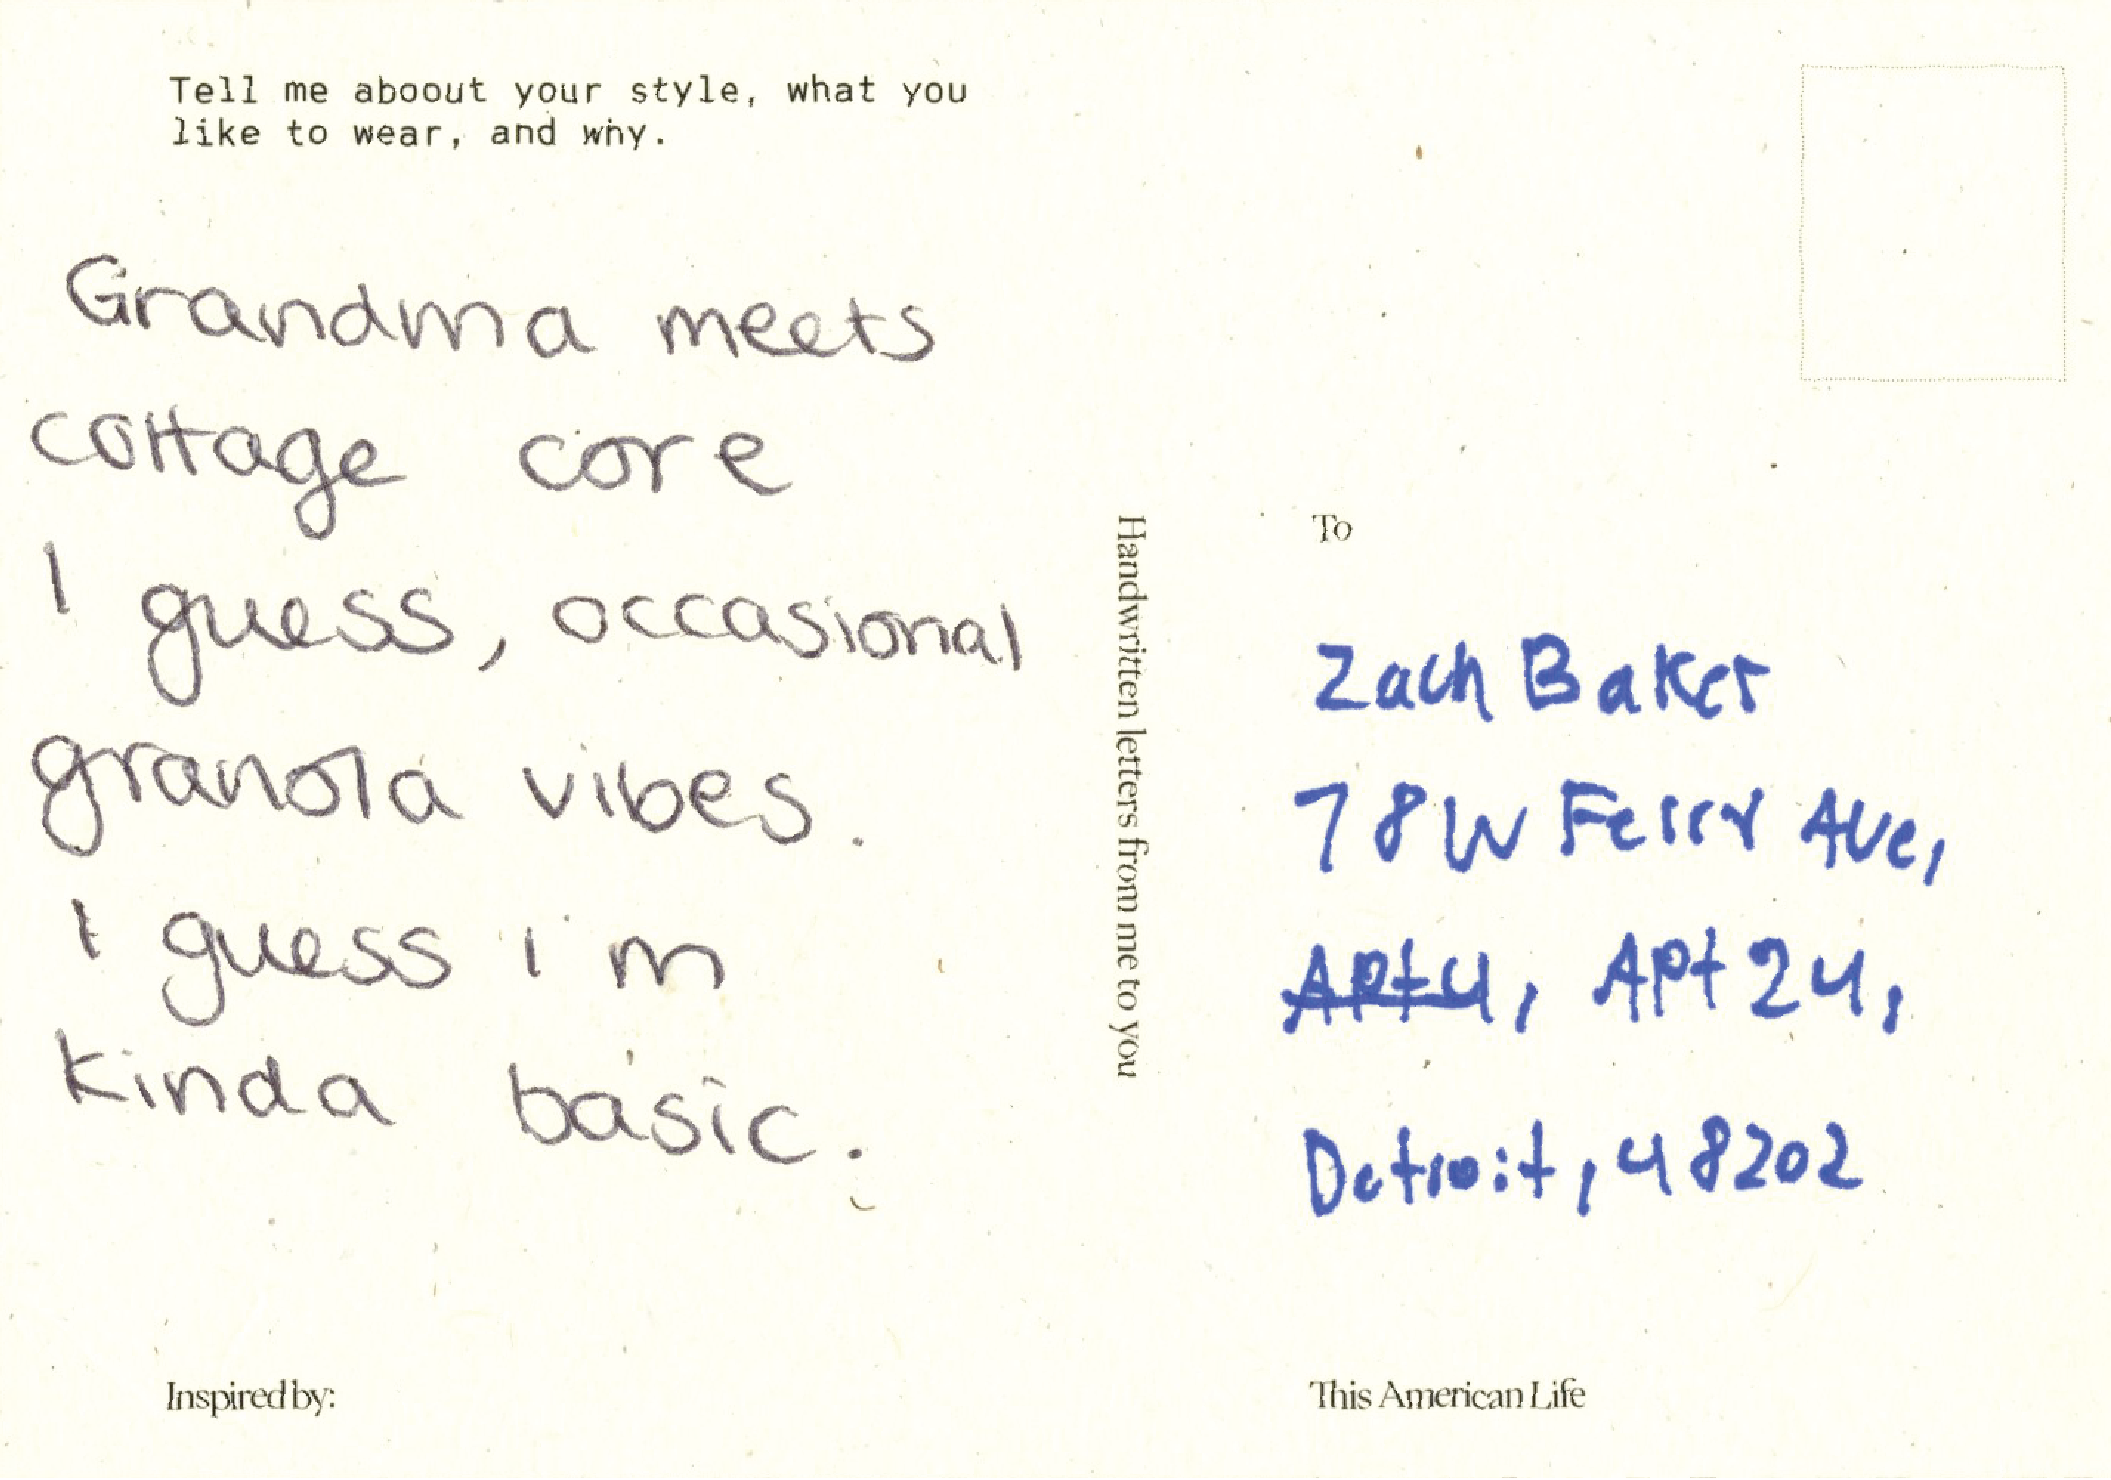 Tell me aboout your style, what you
like to wear, and why.
Grandma meets
cottage core
I guess, occasional
granola vibes.
I guess i'm
kinda basic.
Inspired by:
Handwritten letters from me to you
To
Zach Baker
78 W Ferry Ave,
Apt 4, Apt 24,
Detroit, 48202
This American Life